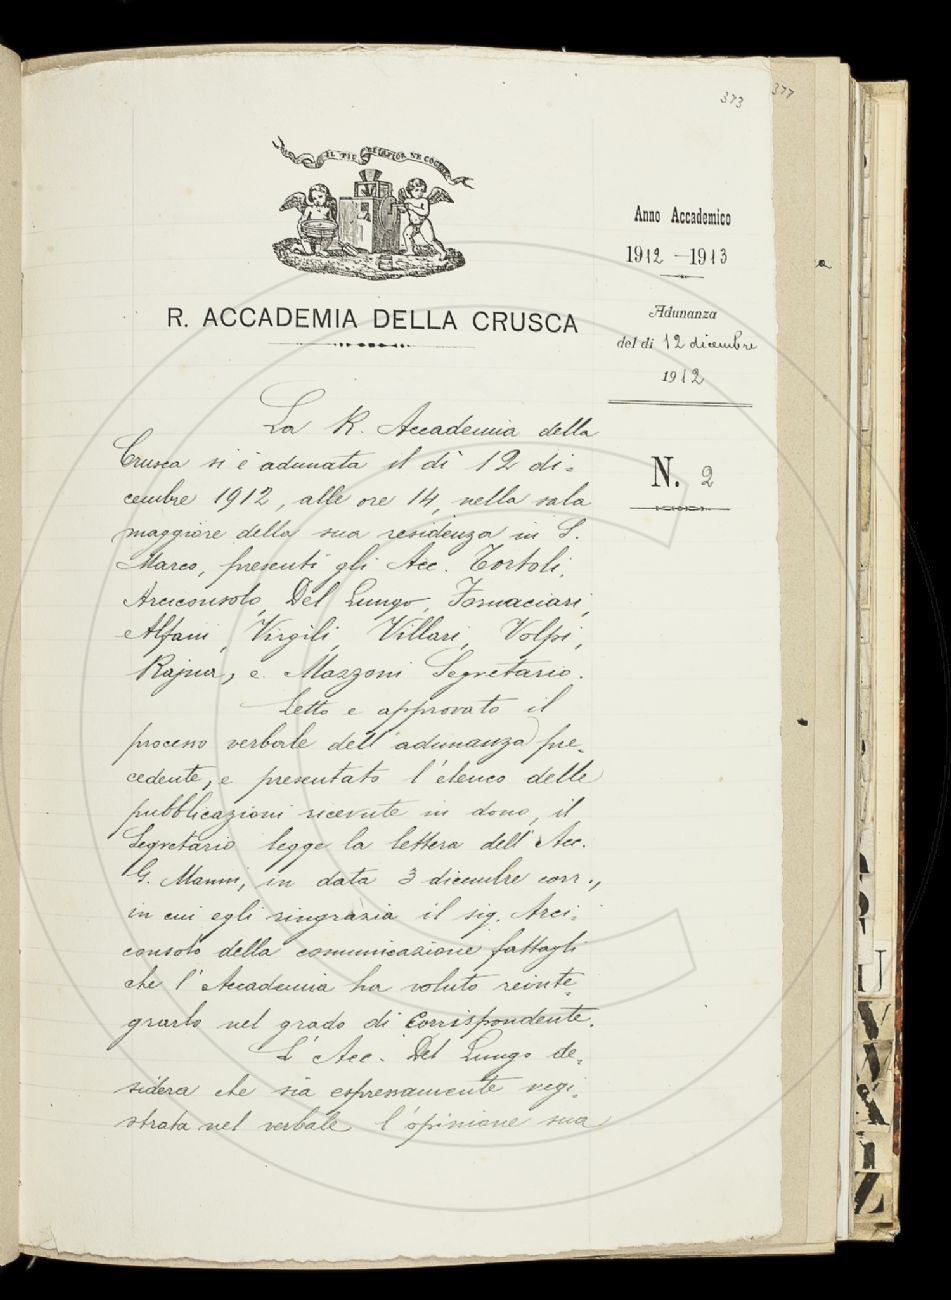 373
377
IL PIÙ BEL FIOR NE COGLIE
Anno Accademico
1912 - 1913
Adunanza
del dì 12 dicembre
1912
N. 2
R. ACCADEMIA DELLA CRUSCA
La R. Accademia della
Crusca si è adunata il dì 12 di=
cembre 1912, alle ore 14, nella sala
maggiore della sua residenza in S.
Marco, presenti gli Acc. Tortoli,
Arciconsolo, Del Lungo, Fornaciari,
Alfani, Virgili, Villari, Volpi,
Rajna, e Mazzoni Segretario.
Letto e approvato il
processo verbale dell'adunanza pre=
cedente, e presentato l'elenco delle
pubblicazioni ricevute in dono, il
Segretario legge la lettera dell'Acc.
G. Manni, in data 3 dicembre corr.,
in cui egli ringrazia il sig. Arci=
consolo della comunicazione fattagli
che l'Accademia ha voluto reinte=
grarlo nel grado di Corrispondente.
L'Acc. Del Lungo de=
sidera che sia espressamente regi=
strata nel verbale l'opinione sua